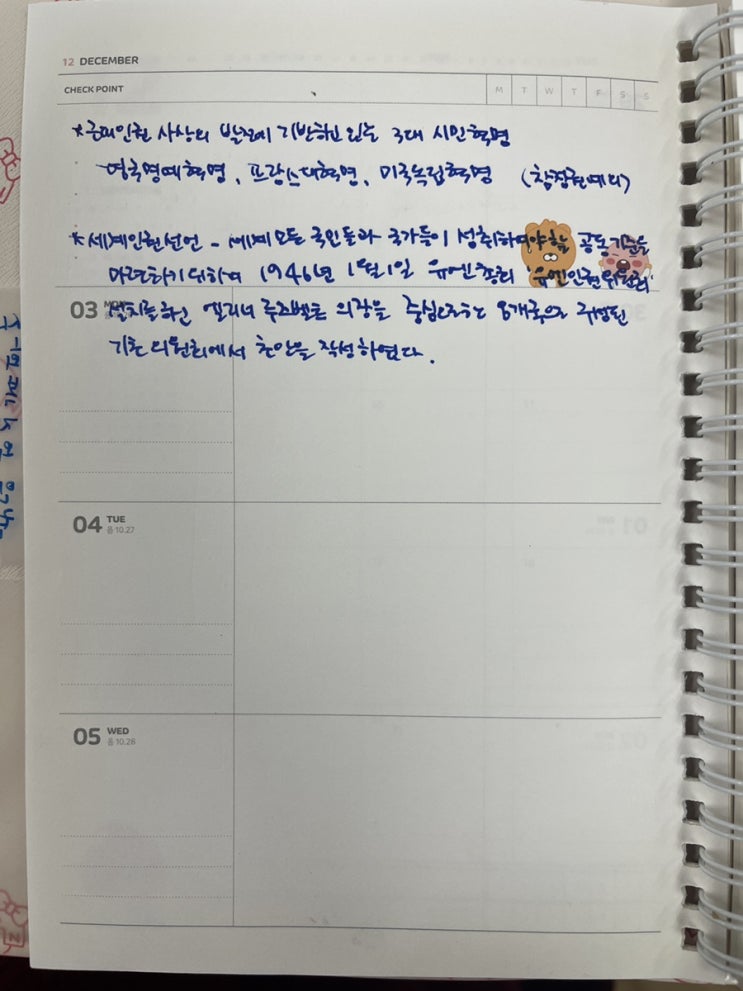 12 DECEMBER
CHECK POINT
M T W T F S S
*근대인권 사상의 발전에 기반하고 있는 3대 시민혁명
영국명예혁명, 프랑스대혁명, 미국독립혁명 (참정권예외)
*세계인권선언 - 세계 모든 국민들과 국가들이 성취하여야할 공통기준을
마련하기 위하여 1946년 1월1일 유엔 총회 '유엔인권위원회'
03 MON 설치를하고 엘리너 루즈벨트 의장을 중심으로하는 8개국으로 구성된
기초위원회에서 초안을 작성하였다.
04 TUE
음 10.27
05 WED
음 10.28